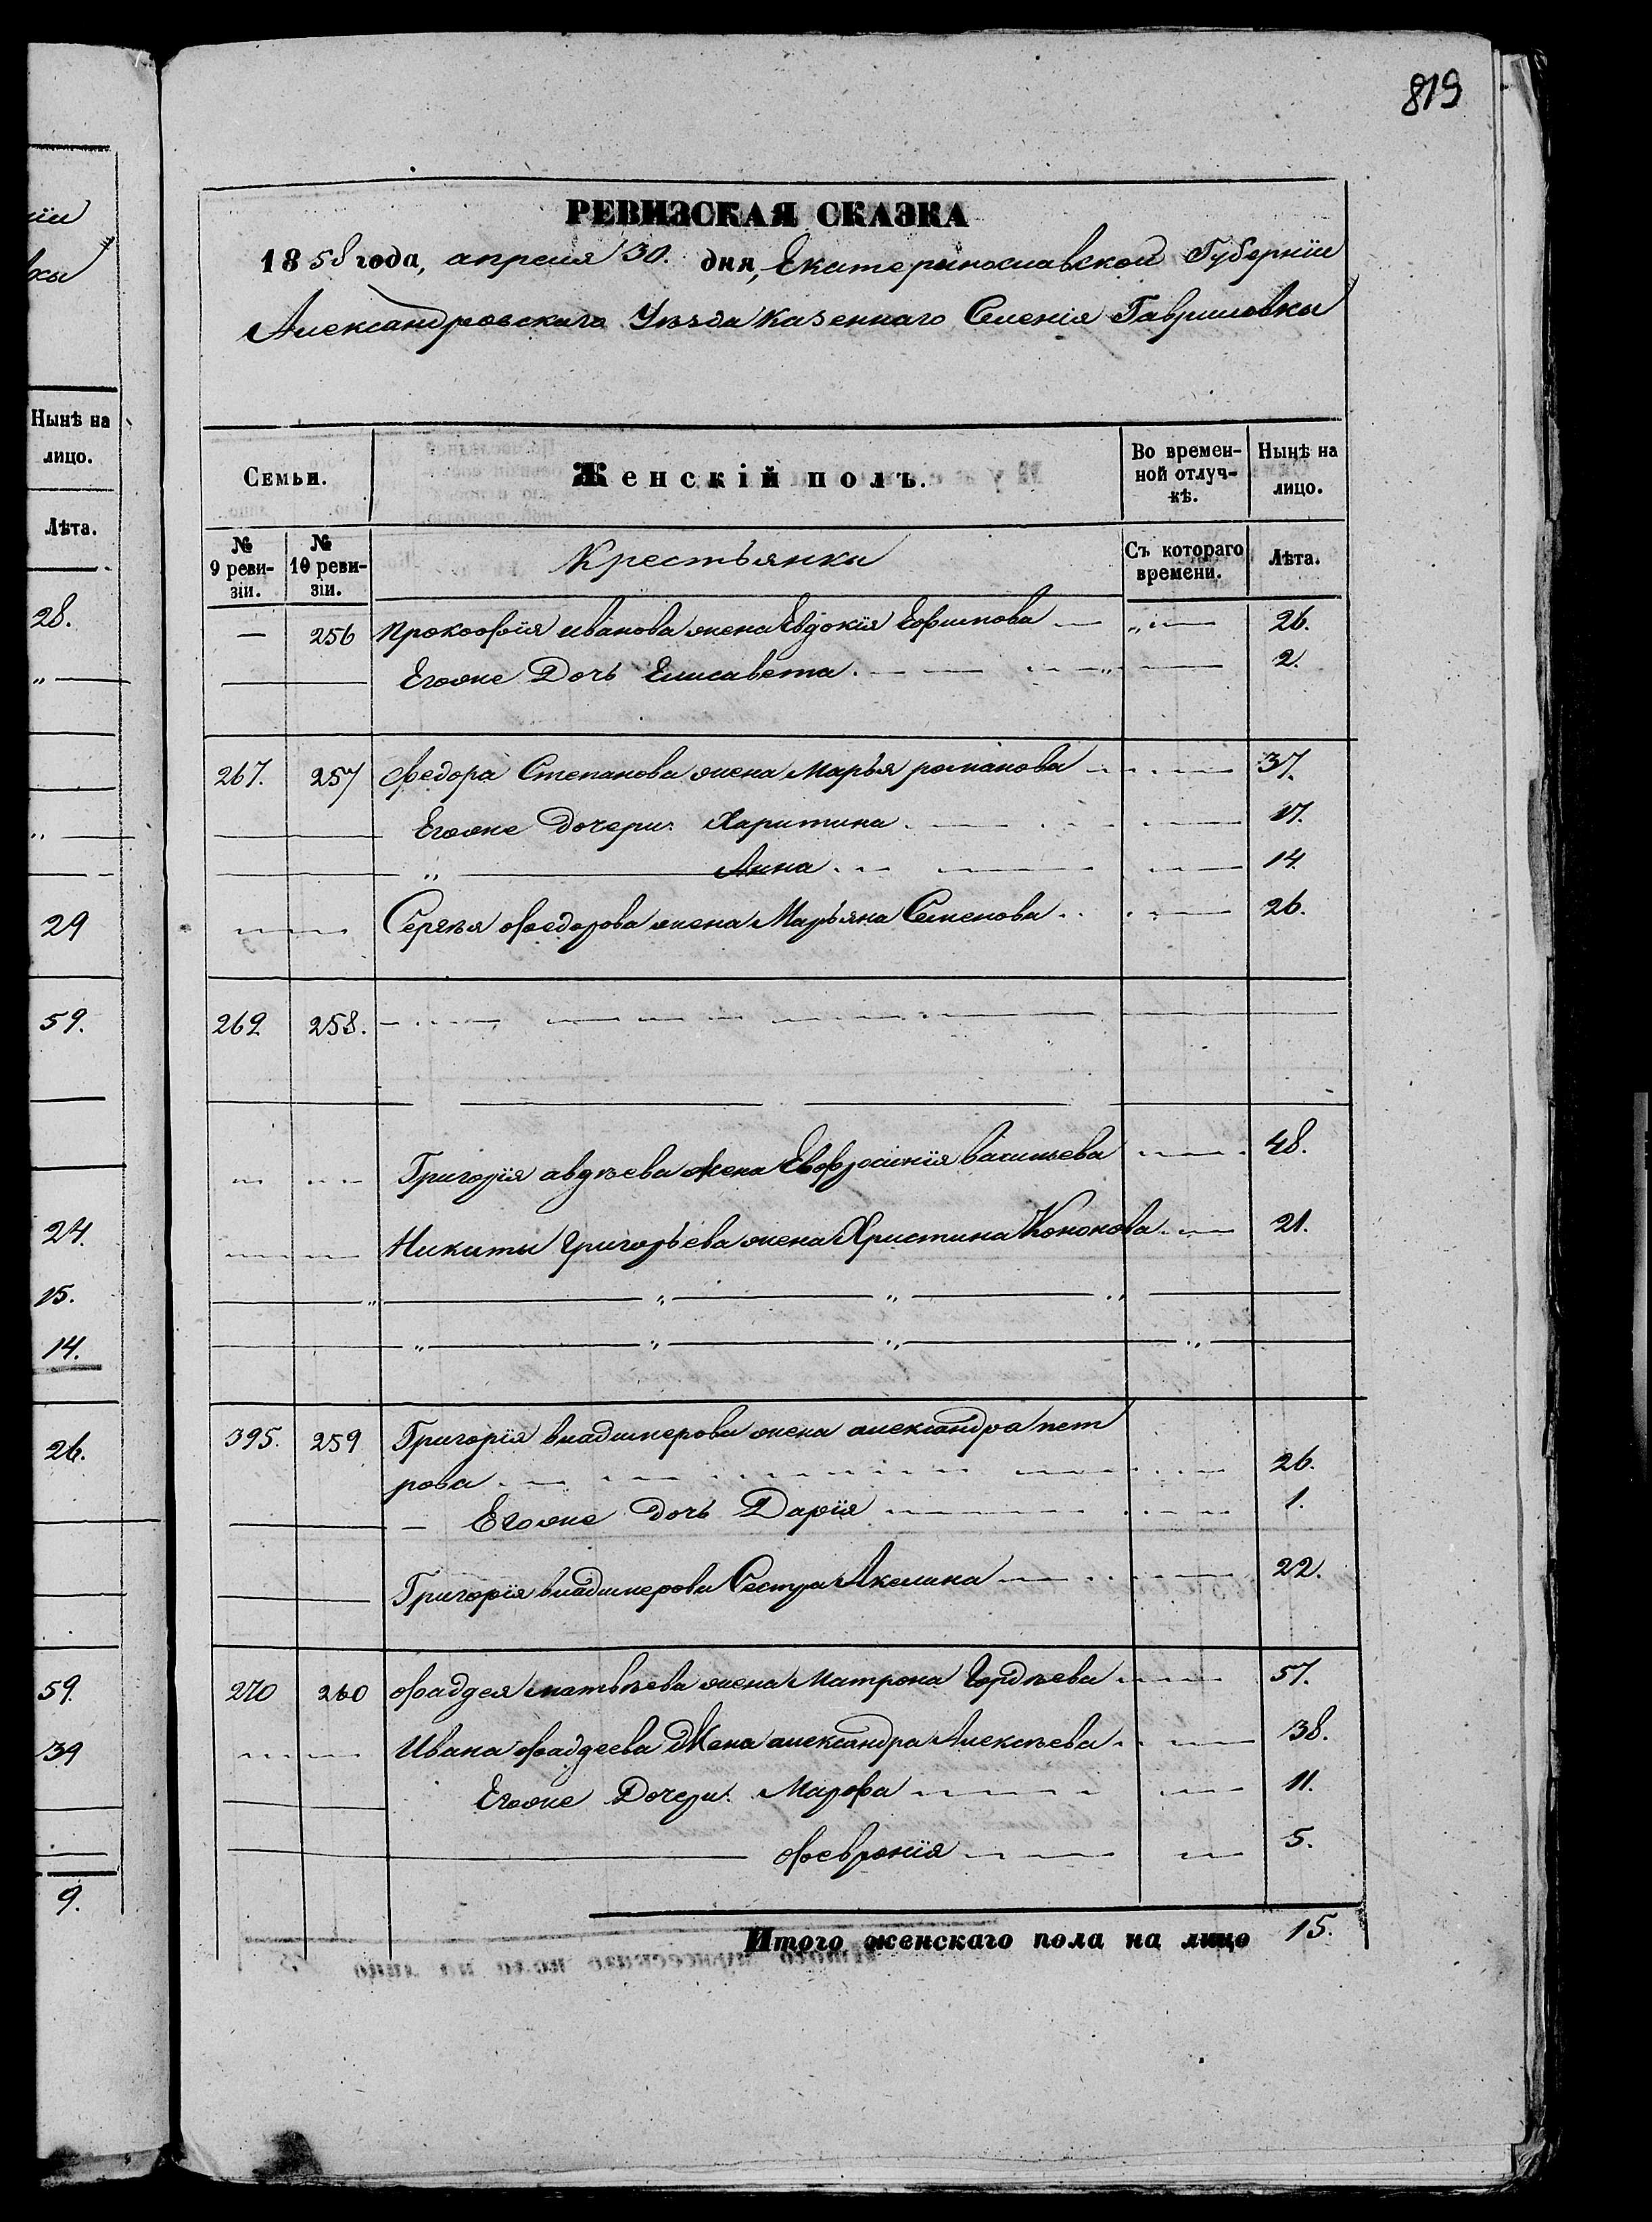 819
РЕВИЗСКАЯ СКАЗКА
1858 года, апреля 30. дня, Екатеринославской Губернїи
Александровскаго Уѣзда Казеннаго Селенія Гавриловки
Семьи. Женскій полъ. Во времен- Нынѣ на
ной отлуч- лицо.
кѣ.
№ № Крестьянки Съ котораго Лѣта.
9 реви- 10 реви- времени.
зіи. зіи.
— 256 Прокофїя иванова жена Евдокїя Ефимова — 26.
Егоже Дочь Елисавета. 2.
267. 257 федора Степанова жена Марья романова 37.
Егоже дочери: Харитина. 17.
„ Анна 14.
Сергѣя федорова жена Марьяна Семенова 26.
269. 258.
Григорїя авдѣева жена Евфросинїя васильева 48.
Никиты григорьева жена Христина Кононова 21.
395. 259 Григорїя владимерова жена александра пет
рова 26.
Егоже дочь Дарїя 1.
Григорїя владимерова Сестра Акелина 22.
270 260 фаддея матвѣева жена Матрона Гордѣева 57.
Ивана фаддеева Жена александра Алексѣева 38.
Егоже Дочери: Марфа 11.
февронїя 5.
Итого женскаго пола на лицо 15.
Нынѣ на
лицо.
Лѣта.
28.
29
59.
24.
15.
14.
26.
59.
39
9.